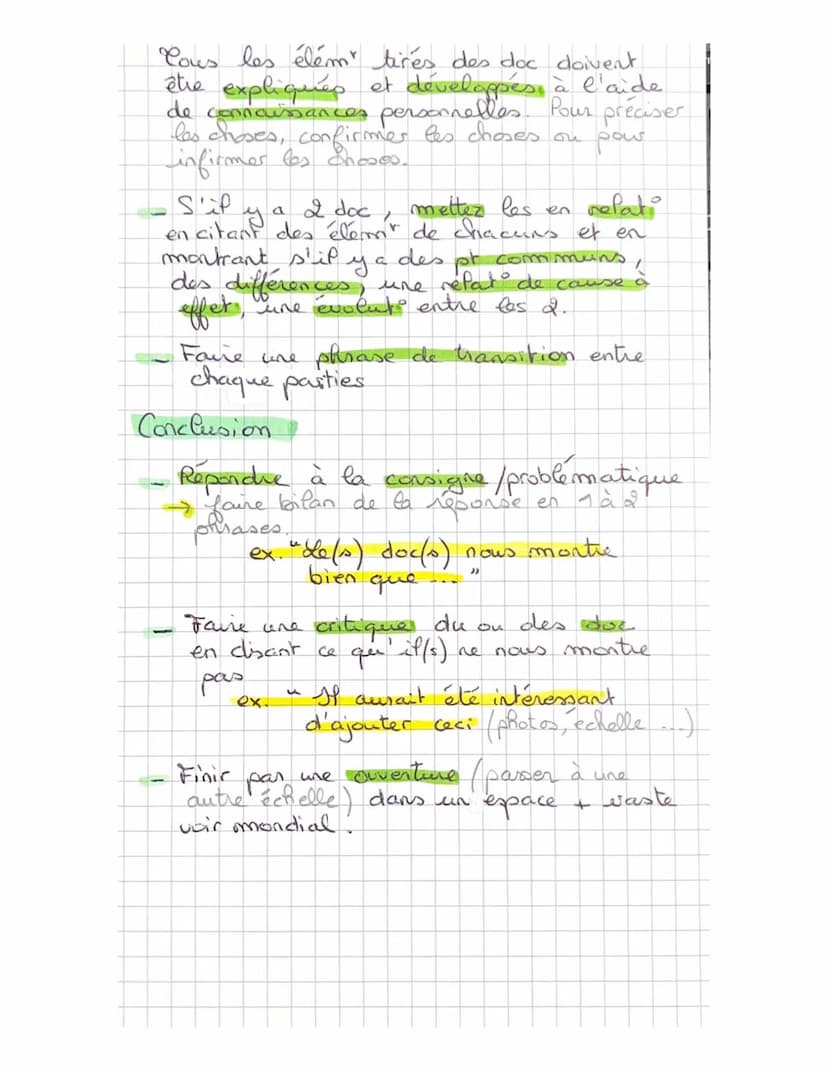 Tous les élémt tirés des doc doivent
être expliqués et développés à l'aide
de connaissances personnelles. Pour préciser
les choses, confirmer les choses ou pour
infirmer les choses.
- S'il y a 2 doc, mettez les en relat°
en citant des élémt de chacuns et en
montrant s'il y a des pt communs,
des différences, une relat° de cause à
effet, une évolut° entre les 2.
- Faire une phrase de transition entre
chaque parties
Conclusion
- Répondre à la consigne/problématique
→ faire bilan de la réponse en 1 à 2
phrases.
ex. "Le(s) doc(s) nous montre
bien que ... "
- Faire une critique du ou des doc
en disant ce qu'il(s) ne nous montre
pas
ex. " Il aurait été intéressant
d'ajouter ceci (photos, échelle ...)
- Finir par une ouverture (passer à une
autre échelle) dans un espace + vaste
voir mondial.